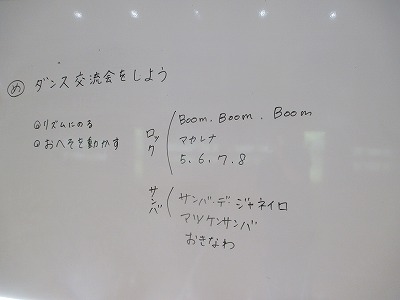 め ダンス交流会をしよう
◎リズムにのる
◎おへそを動かす
ロック
Boom. Boom. Boom
マカレナ
5.6.7.8
サンバ
サンバ・デ・ジャネイロ
マツケンサンバ
おきなわ